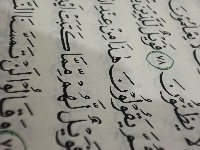 يَظُنُّونَ ٧٨ فَوَيْلٌ لِّلَّذِينَ
يَقُولُونَ هَٰذَا مِنْ عِندِ
فَوَيْلٌ لَّهُم مِّمَّا كَتَبَتْ
وَقَالُوا لَن تَمَسَّنَا